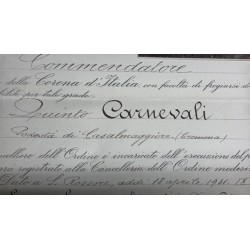 Commendatore
della Corona d'Italia con facoltà di fregiarsi d
bilite per tale grado
Quinto Carnevali
Podestà di Casalmaggiore (Cremona)
ncelliere dell'Ordine è incaricato dell'esecuzione del p
rà registrato alla Cancelleria dell'Ordine medesi
Dato a S. Rossore addì 18 aprile 1941. 18